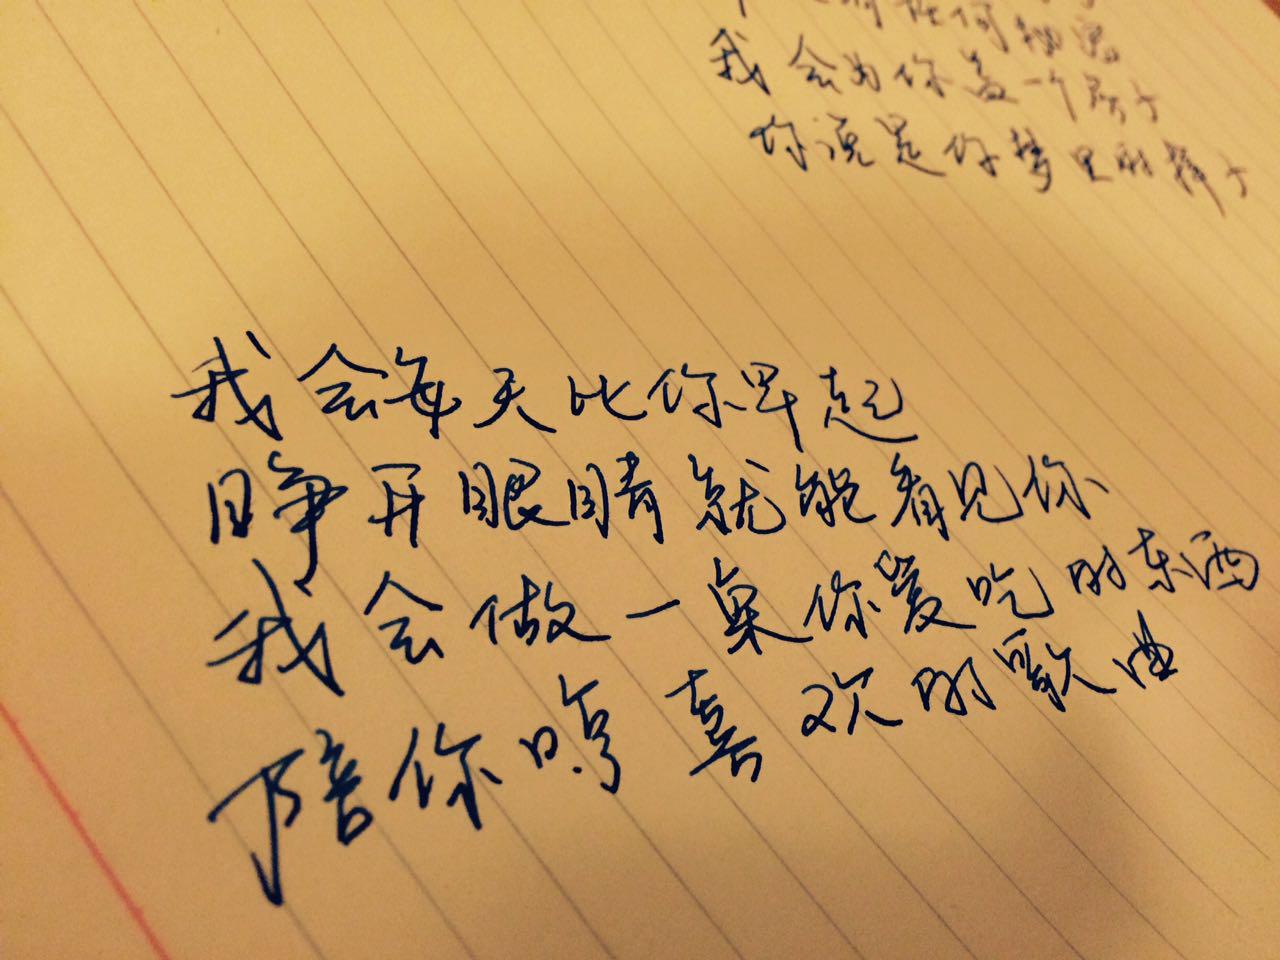 我会为你盖一个房子
你说是你梦里的样子
我会每天比你早起
睁开眼睛就能看见你
我会做一桌你爱吃的东西
陪你哼喜欢的歌曲